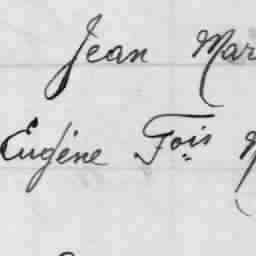 Jean Mar
Eugéne Fois